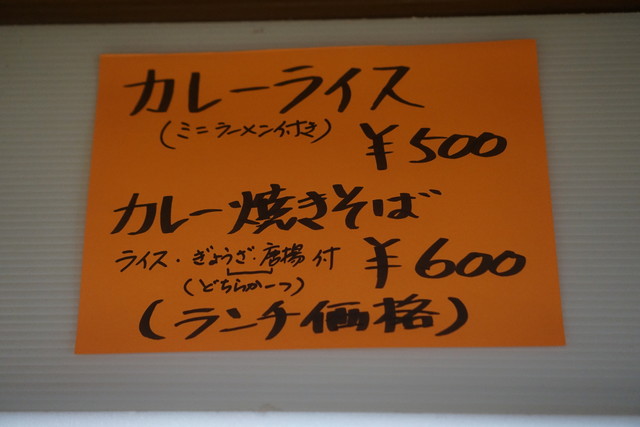 カレーライス
(ミニラーメン付き) ¥500
カレー焼きそば
ライス・ぎょうざ・唐揚付 ¥600
(どちらか一つ)
(ランチ価格)